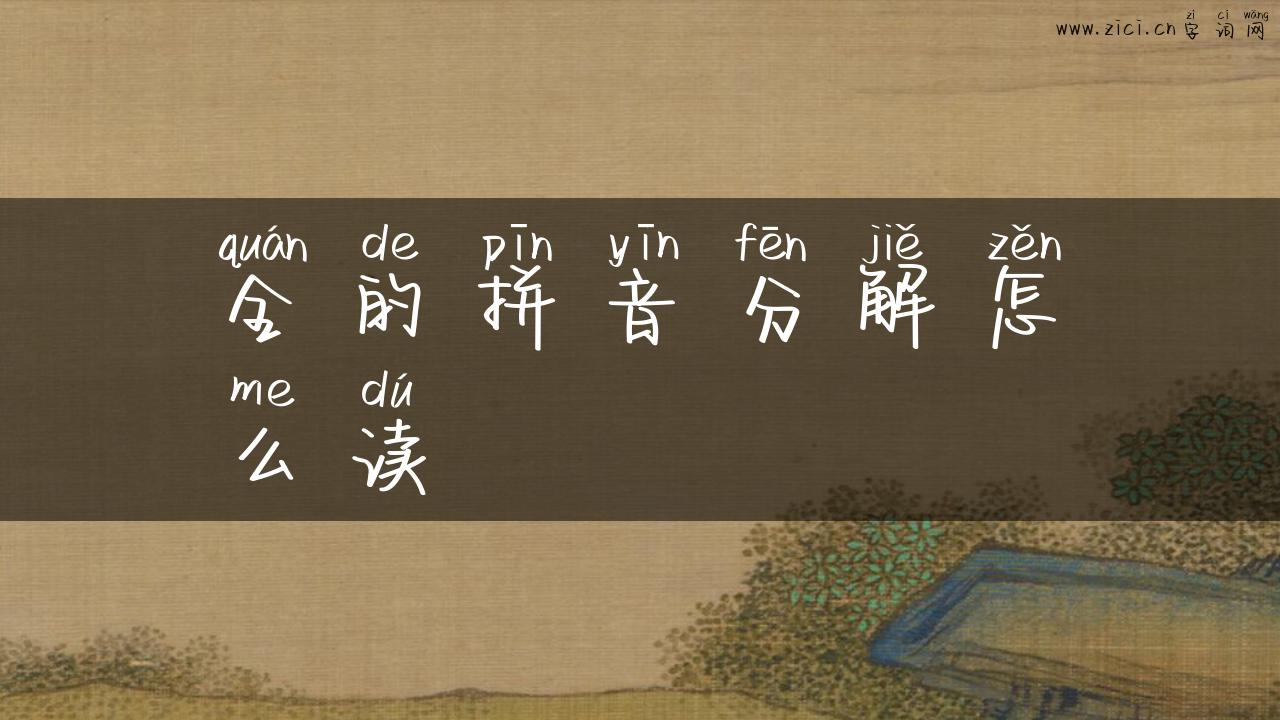 zì cí wǎng
www.zici.cn 字词网
quán de pīn yīn fēn jiě zěn
全的拼音分解怎
me dú
么读